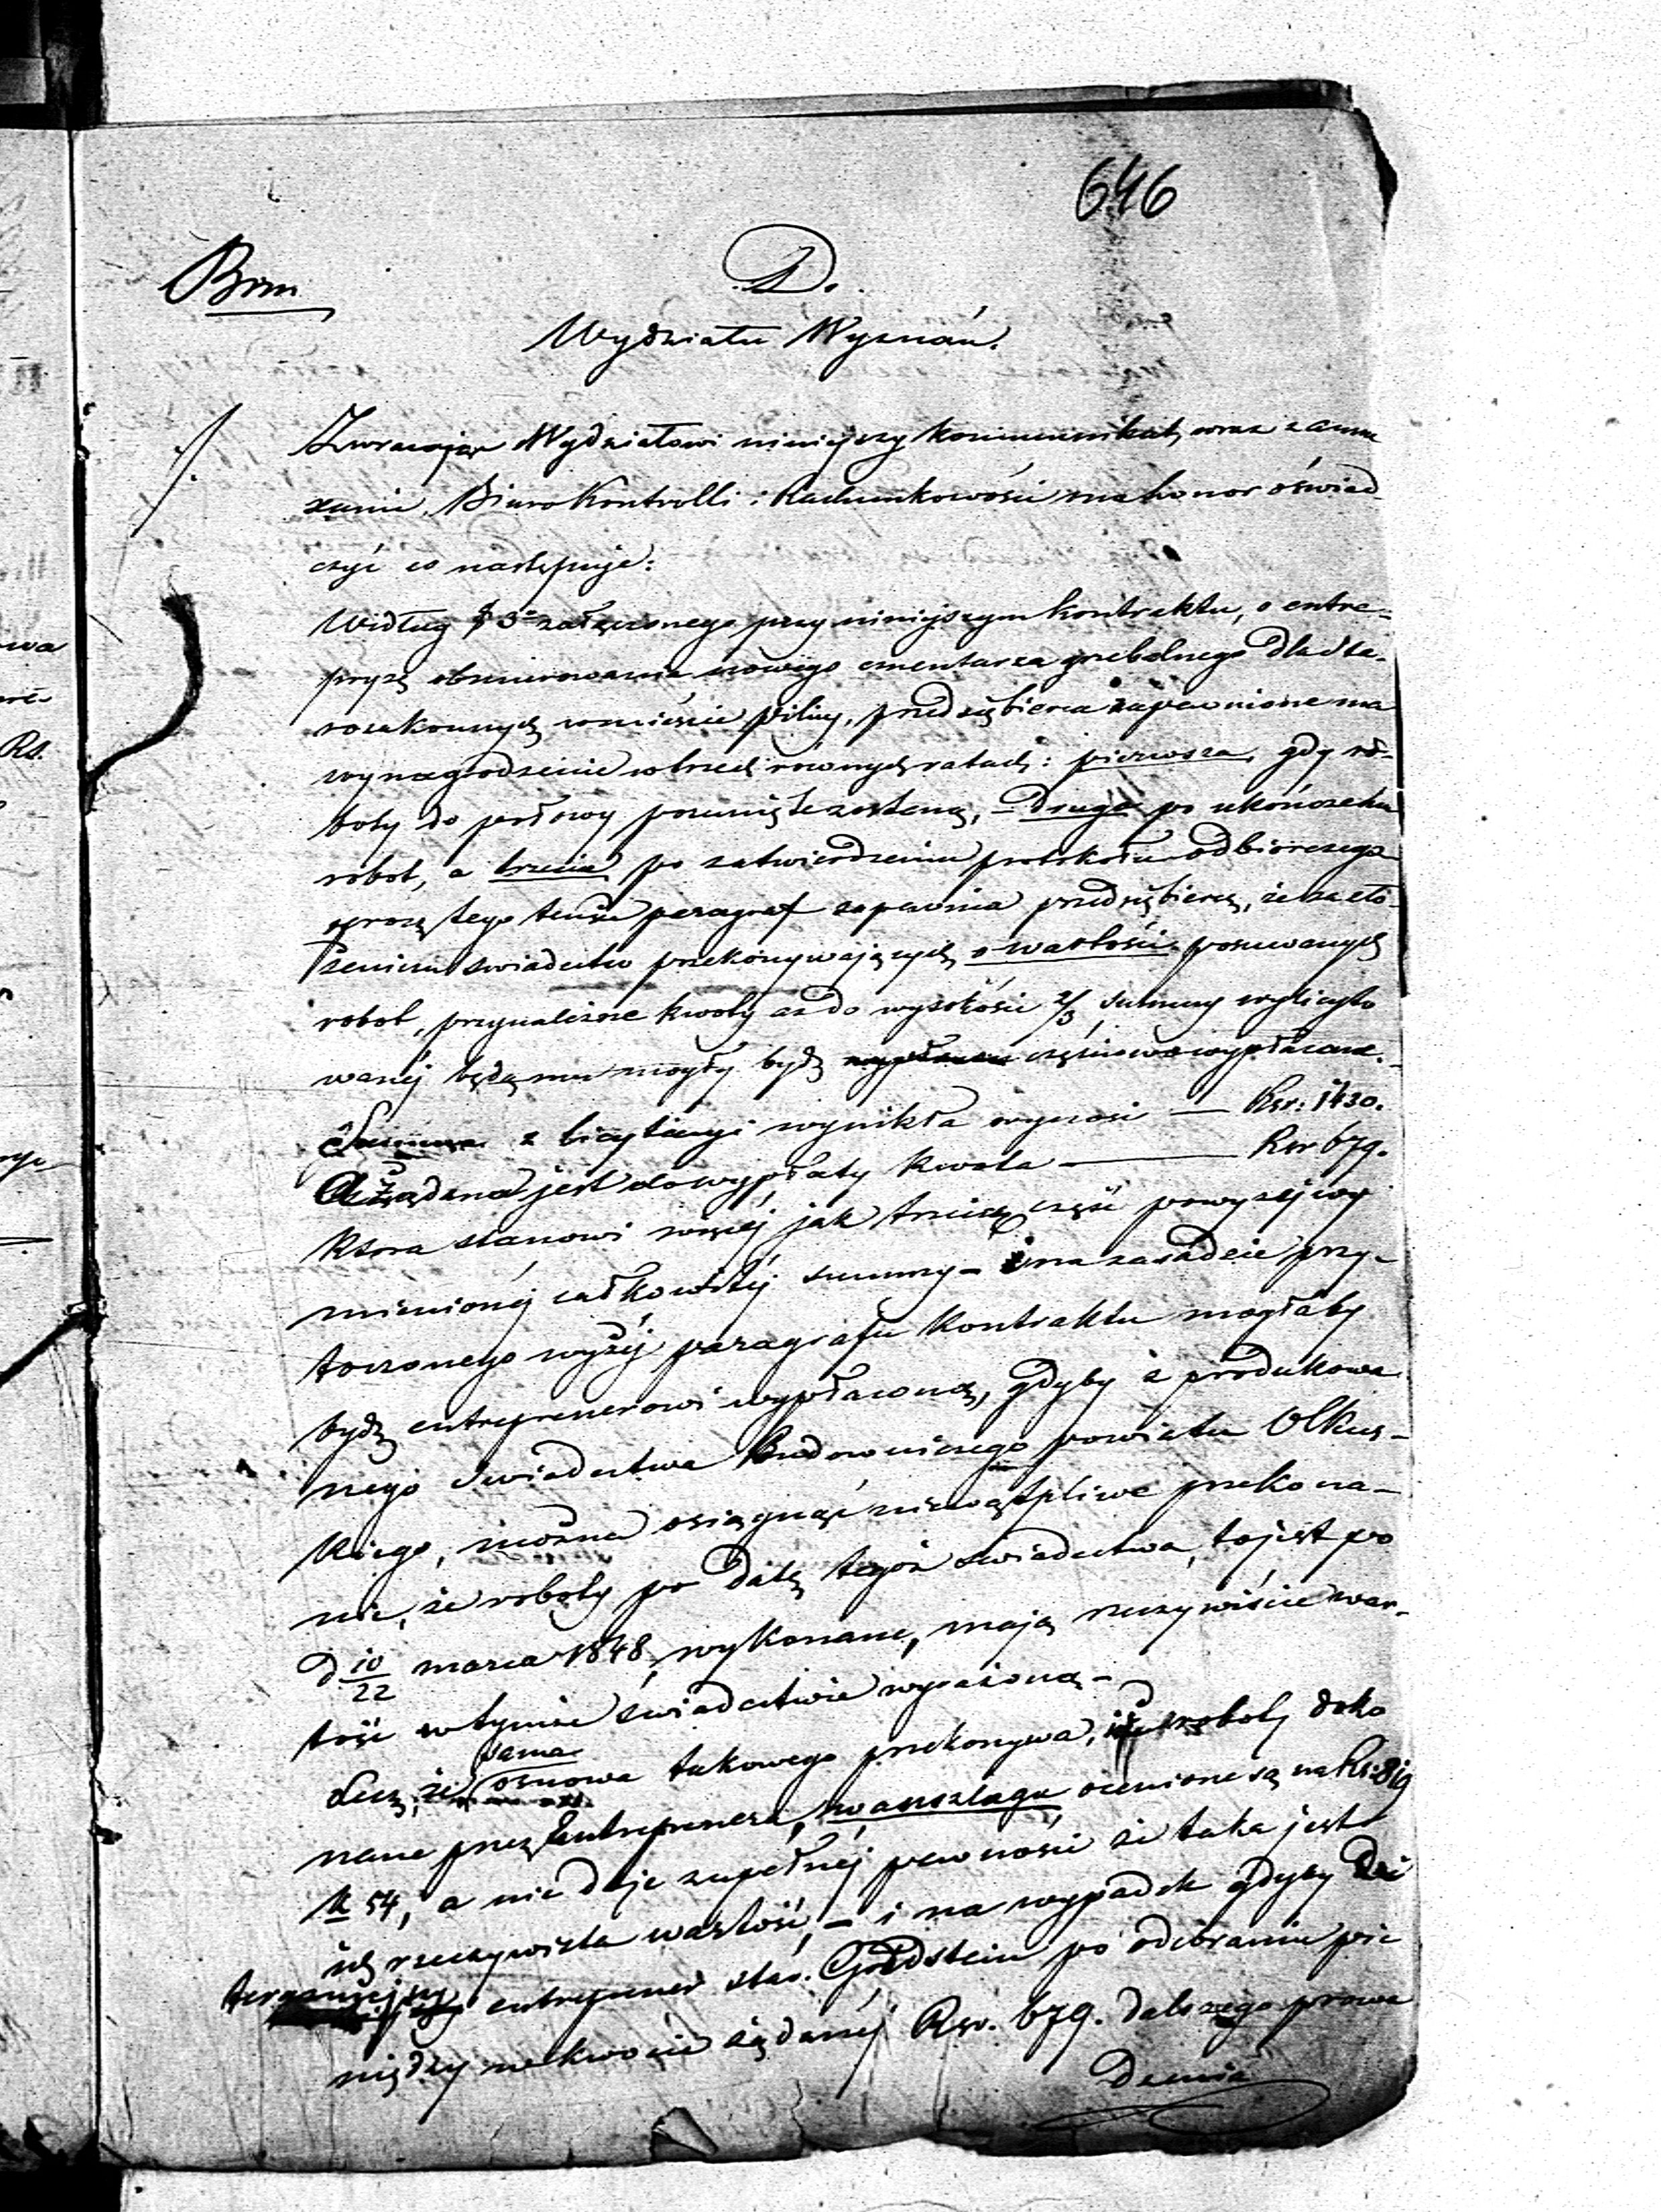 646
Brm
D.
Wydziału Wyznań.
Zwracając Wydziałowi niniejszy kommunikat, wraz z anne
xami, Biuro Kontrolli i Rachunkowości ma honor oświad
czyć co następuje:
Według § 3º załączonego przy niniejszym kontraktu, o entre-
pryzę obmurowania nowego cmentarza grzebalnego dla sta-
rozakonnych w mieście Pilicy, przedsiębierca zapewnione ma
wynagrodzenie w trzech równych ratach: pierwsza, gdy ro-
boty do połowy posunięte zostaną, – druga po ukończeniu
robot, a trzecia po zatwierdzeniu protokołu odbiorczego
oprócz tego tenże paragraf zapewnia przedsiębiercę, że za zło-
żeniem świadectw przekonywających o wartości posuwanych
robot, przynależne kwoty aż do wysokości 2/3 summy wylicyto
wanéj będą mu mogły bydź częściowo wypłacane.
Summa z licytacyi wynikła wynosi — Rsr: 1430.
Żądana jest do wypłaty kwota — Rsr 679.
Ktora stanowi więcéj jak trzecią część powyżéj wy
mienionéj całkowitéj summy – i na zasadzie przy-
toczonego wyżéj paragrafu Kontraktu mogłaby
bydź entreprenerowi wypłaconą, gdyby z produkowa
nego świadectwa Budowniczego powiatu Olkus-
kiego, można osiągnąć niewątpliwe przekona-
nie, że roboty po datę tegoż świadectwa, to jest po
d 10/22 marca 1848, wykonane, mają rzeczywiście war-
tość w tymże świadectwie wyrażoną –
Lecz, że sama osnowa takowego przekonywa, że roboty doko
nane przez Entreprenera, w anszlagu ocenione są na Rs: 819
k 54, a nie daje zupełnéj pewności że taka jest
ich rzeczywista wartość, – i na wypadek gdyby dzi
teraźniejszy entreprener star. Goldstein po odebraniu pie
niędzy w kwocie żądanéj Rsr. 679. dalszego prowa
dzenia